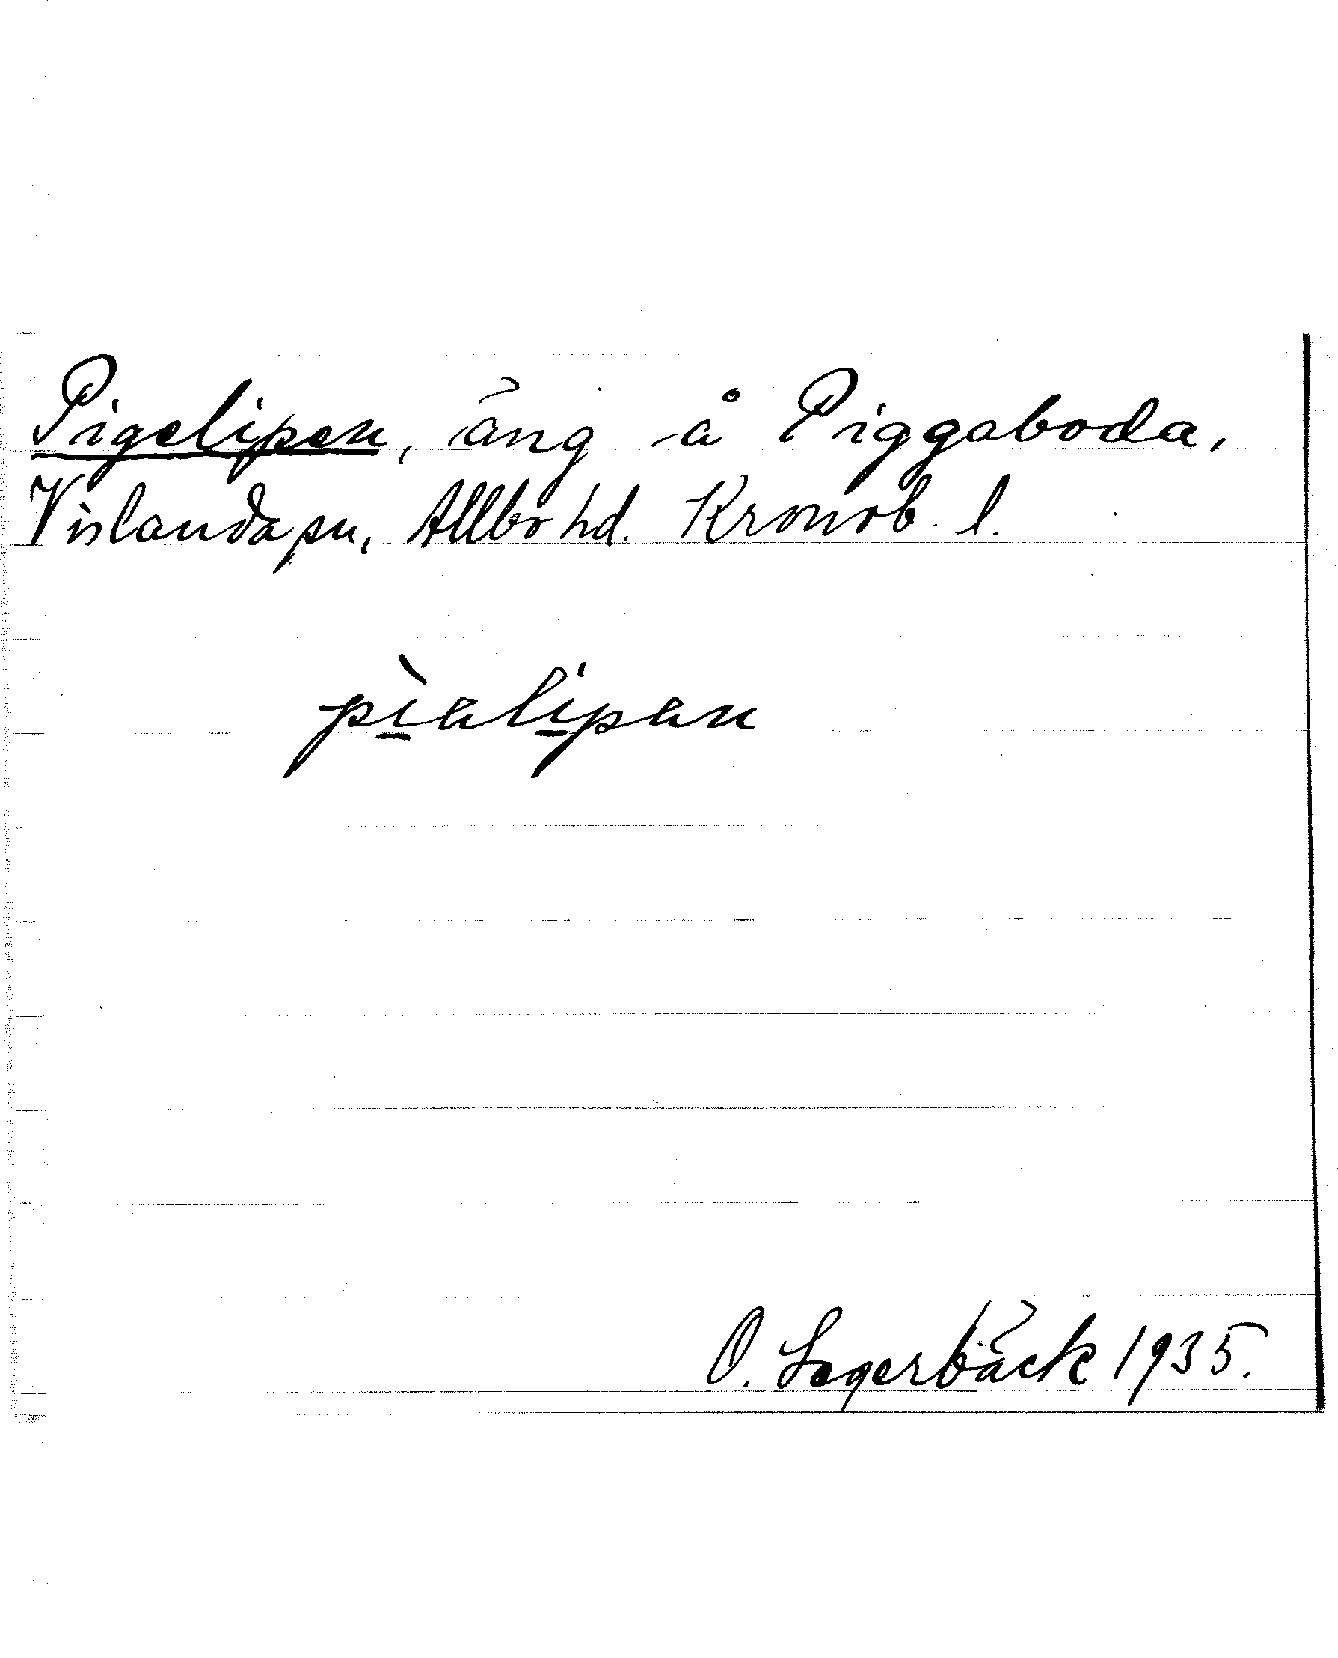 Pigelipen, äng å Piggaboda,
Vislanda sn, Allbo hd. Kronob. l.
pìalípan
O. Lagerbäck 1935.